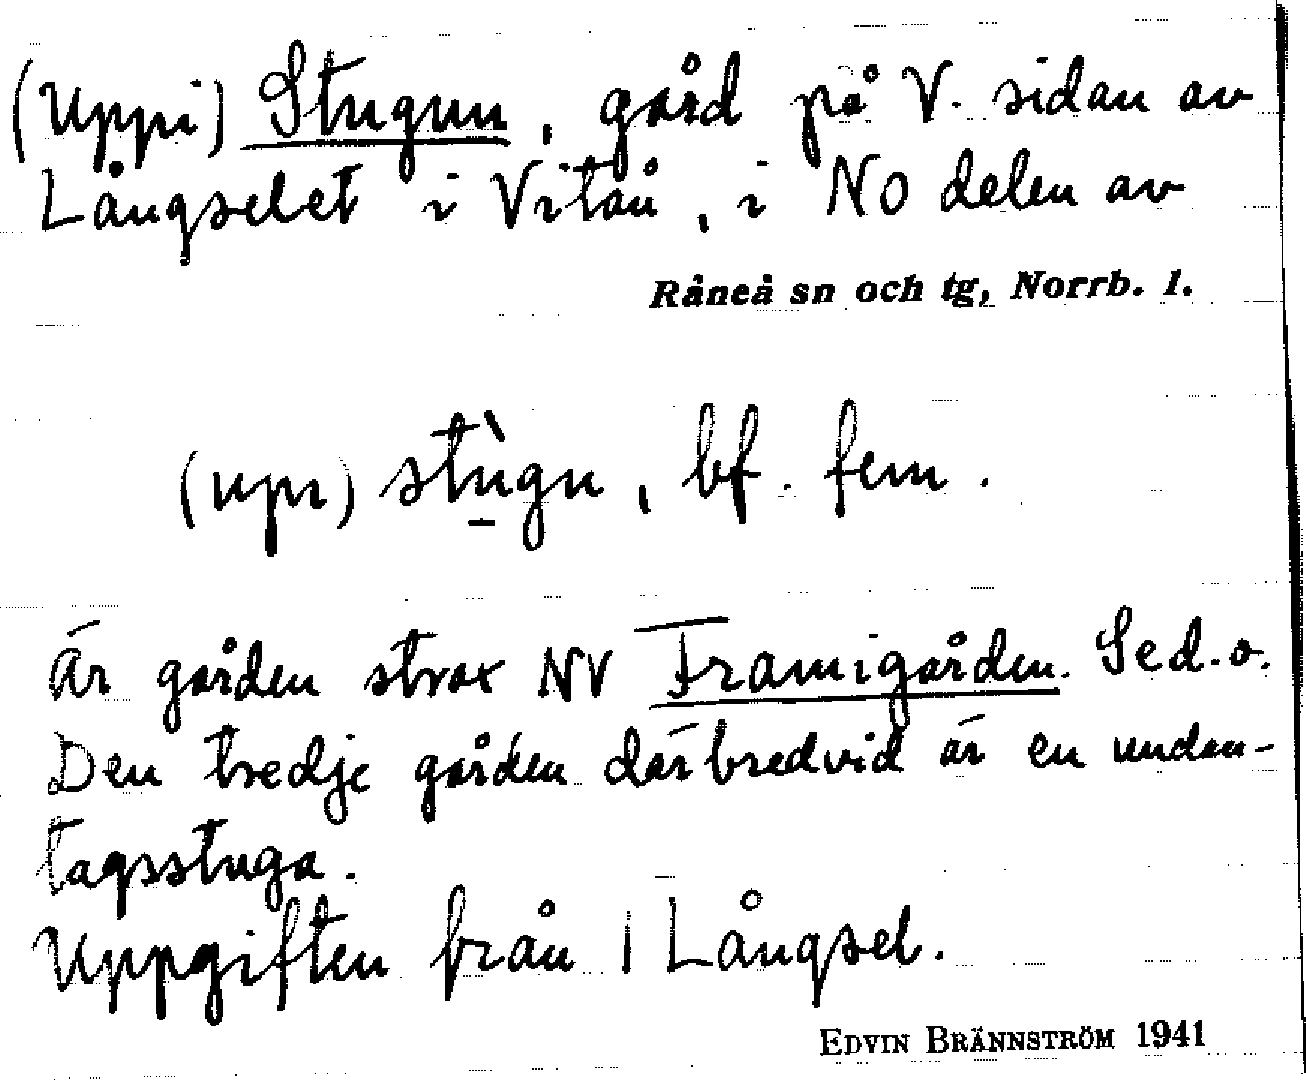 (Uppi) Stugun, gård på V. sidan av
Långselet i Vitån, i NO delen av
Råneå sn och tg, Norrb. l.
(upi) stùgu, bf. fem.
Är gården strax NV Framigården. Se d.o.
Den tredje gården därbredvid är en undan-
tagsstuga.
Uppgiften från 1 Långsel.
EDVIN BRÄNNSTRÖM 1941